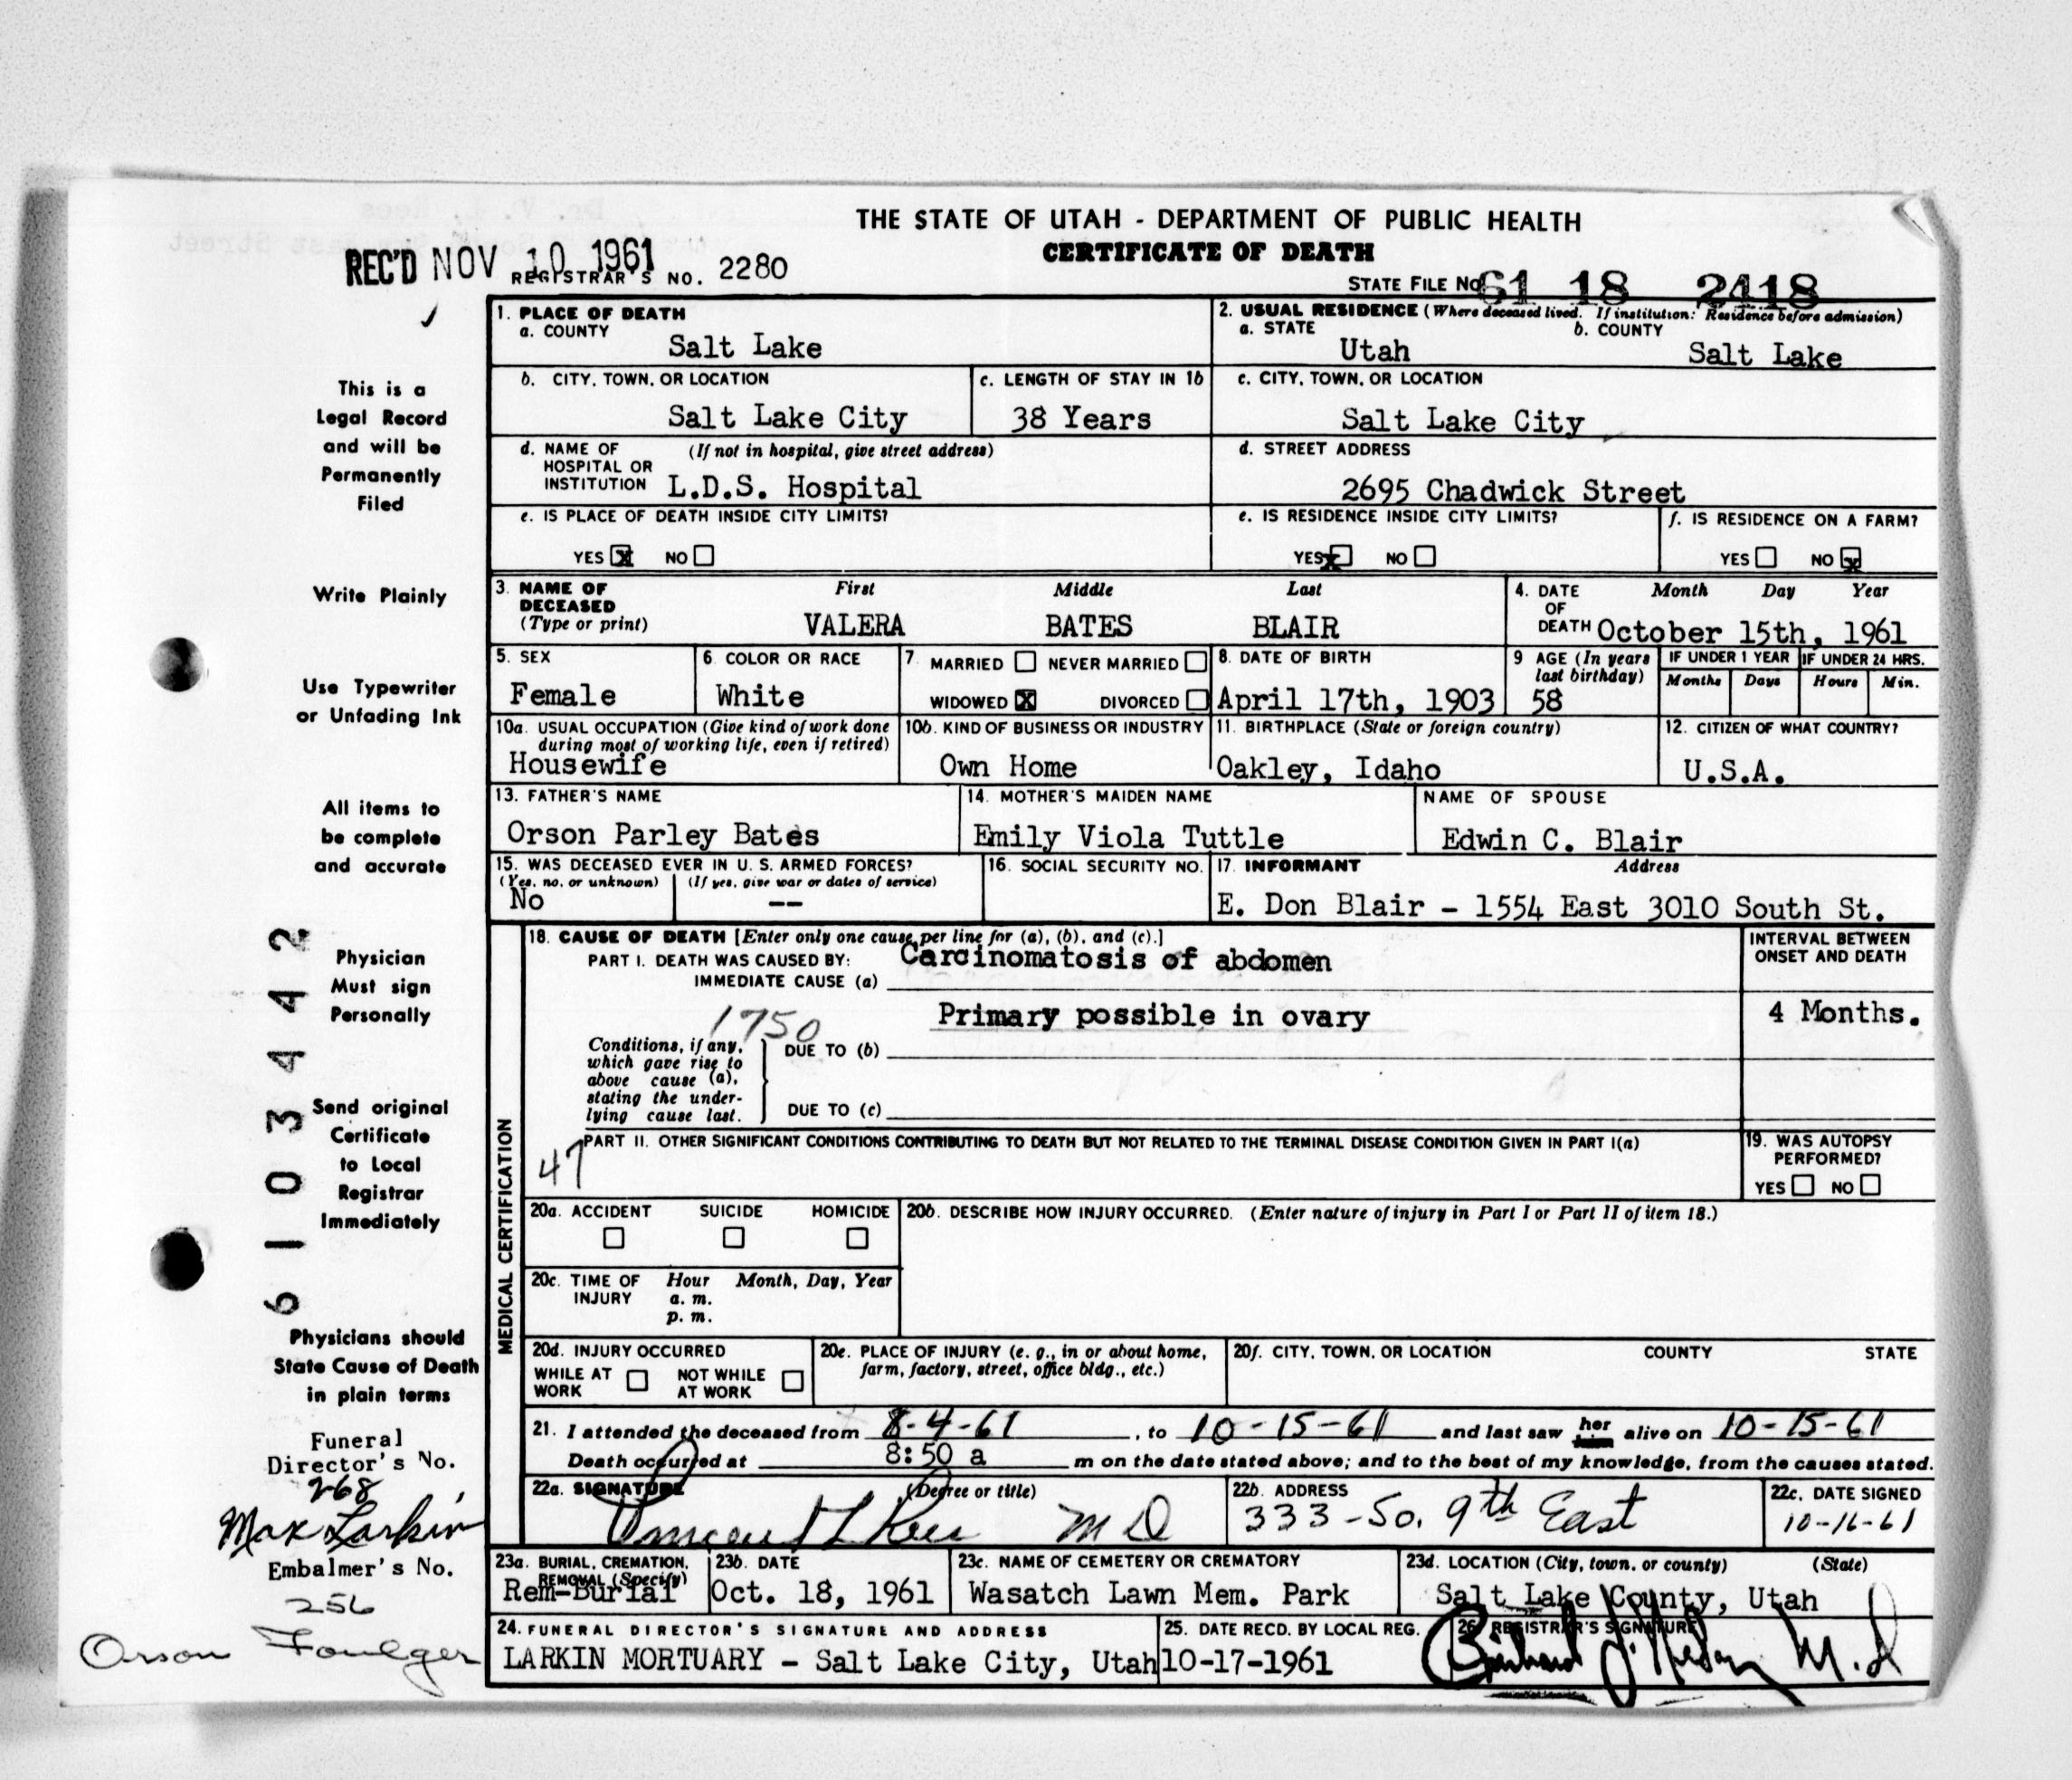 THE STATE OF UTAH - DEPARTMENT OF PUBLIC HEALTH
CERTIFICATE OF DEATH
REC'D NOV 10 1961 REGISTRAR'S NO. 2280
STATE FILE NO. 61 18 2418
This is a
Legal Record
and will be
Permanently
Filed
Write Plainly
Use Typewriter
or Unfading Ink
All items to
be complete
and accurate
Physician
Must sign
Personally
Send original
Certificate
to Local
Registrar
Immediately
6 1 0 3 4 4 2
Physicians should
State Cause of Death
in plain terms
Funeral
Director's No.
268
Max Larkin
Embalmer's No.
256
Orson Foulger
1. PLACE OF DEATH
a. COUNTY
Salt Lake
2. USUAL RESIDENCE (Where deceased lived. If institution: Residence before admission)
a. STATE b. COUNTY
Utah Salt Lake
b. CITY, TOWN, OR LOCATION
Salt Lake City
c. LENGTH OF STAY IN 1b
38 Years
c. CITY, TOWN, OR LOCATION
Salt Lake City
d. NAME OF (If not in hospital, give street address)
HOSPITAL OR
INSTITUTION L.D.S. Hospital
d. STREET ADDRESS
2695 Chadwick Street
e. IS PLACE OF DEATH INSIDE CITY LIMITS?
YES X NO
e. IS RESIDENCE INSIDE CITY LIMITS?
YES X NO
f. IS RESIDENCE ON A FARM?
YES NO X
3. NAME OF First Middle Last
DECEASED
(Type or print) VALERA BATES BLAIR
4. DATE Month Day Year
OF
DEATH October 15th, 1961
5. SEX
Female
6. COLOR OR RACE
White
7. MARRIED NEVER MARRIED
WIDOWED X DIVORCED
8. DATE OF BIRTH
April 17th, 1903
9 AGE (In years
last birthday)
58
IF UNDER 1 YEAR
Months Days
IF UNDER 24 HRS.
Hours Min.
10a. USUAL OCCUPATION (Give kind of work done
during most of working life, even if retired)
Housewife
10b. KIND OF BUSINESS OR INDUSTRY
Own Home
11. BIRTHPLACE (State or foreign country)
Oakley, Idaho
12. CITIZEN OF WHAT COUNTRY?
U.S.A.
13. FATHER'S NAME
Orson Parley Bates
14. MOTHER'S MAIDEN NAME
Emily Viola Tuttle
NAME OF SPOUSE
Edwin C. Blair
15. WAS DECEASED EVER IN U. S. ARMED FORCES?
(Yes, no, or unknown) (If yes, give war or dates of service)
No --
16. SOCIAL SECURITY NO.
17. INFORMANT Address
E. Don Blair - 1554 East 3010 South St.
MEDICAL CERTIFICATION
18. CAUSE OF DEATH [Enter only one cause per line for (a), (b), and (c).]
PART I. DEATH WAS CAUSED BY: Carcinomatosis of abdomen
IMMEDIATE CAUSE (a)
INTERVAL BETWEEN
ONSET AND DEATH
Primary possible in ovary 4 Months.
1750
Conditions, if any,
which gave rise to
above cause (a),
stating the under-
lying cause last.
DUE TO (b)
DUE TO (c)
PART II. OTHER SIGNIFICANT CONDITIONS CONTRIBUTING TO DEATH BUT NOT RELATED TO THE TERMINAL DISEASE CONDITION GIVEN IN PART I(a)
47
19. WAS AUTOPSY
PERFORMED?
YES NO
20a. ACCIDENT SUICIDE HOMICIDE
20b. DESCRIBE HOW INJURY OCCURRED. (Enter nature of injury in Part I or Part II of item 18.)
20c. TIME OF Hour Month, Day, Year
INJURY a. m.
p. m.
20d. INJURY OCCURRED
WHILE AT WORK NOT WHILE AT WORK
20e. PLACE OF INJURY (e. g., in or about home,
farm, factory, street, office bldg., etc.)
20f. CITY, TOWN, OR LOCATION COUNTY STATE
21. I attended the deceased from 8-4-61, to 10-15-61 and last saw her him alive on 10-15-61
Death occurred at 8:50 a m on the date stated above; and to the best of my knowledge, from the causes stated.
22a. SIGNATURE (Degree or title)
Vincent L Rees M D
22b. ADDRESS
333-So. 9th East
22c. DATE SIGNED
10-16-61
23a. BURIAL, CREMATION,
REMOVAL (Specify)
Rem-Burial
23b. DATE
Oct. 18, 1961
23c. NAME OF CEMETERY OR CREMATORY
Wasatch Lawn Mem. Park
23d. LOCATION (City, town, or county) (State)
Salt Lake County, Utah
24. FUNERAL DIRECTOR'S SIGNATURE AND ADDRESS
LARKIN MORTUARY - Salt Lake City, Utah
25. DATE RECD. BY LOCAL REG.
10-17-1961
26. REGISTRAR'S SIGNATURE
M.D